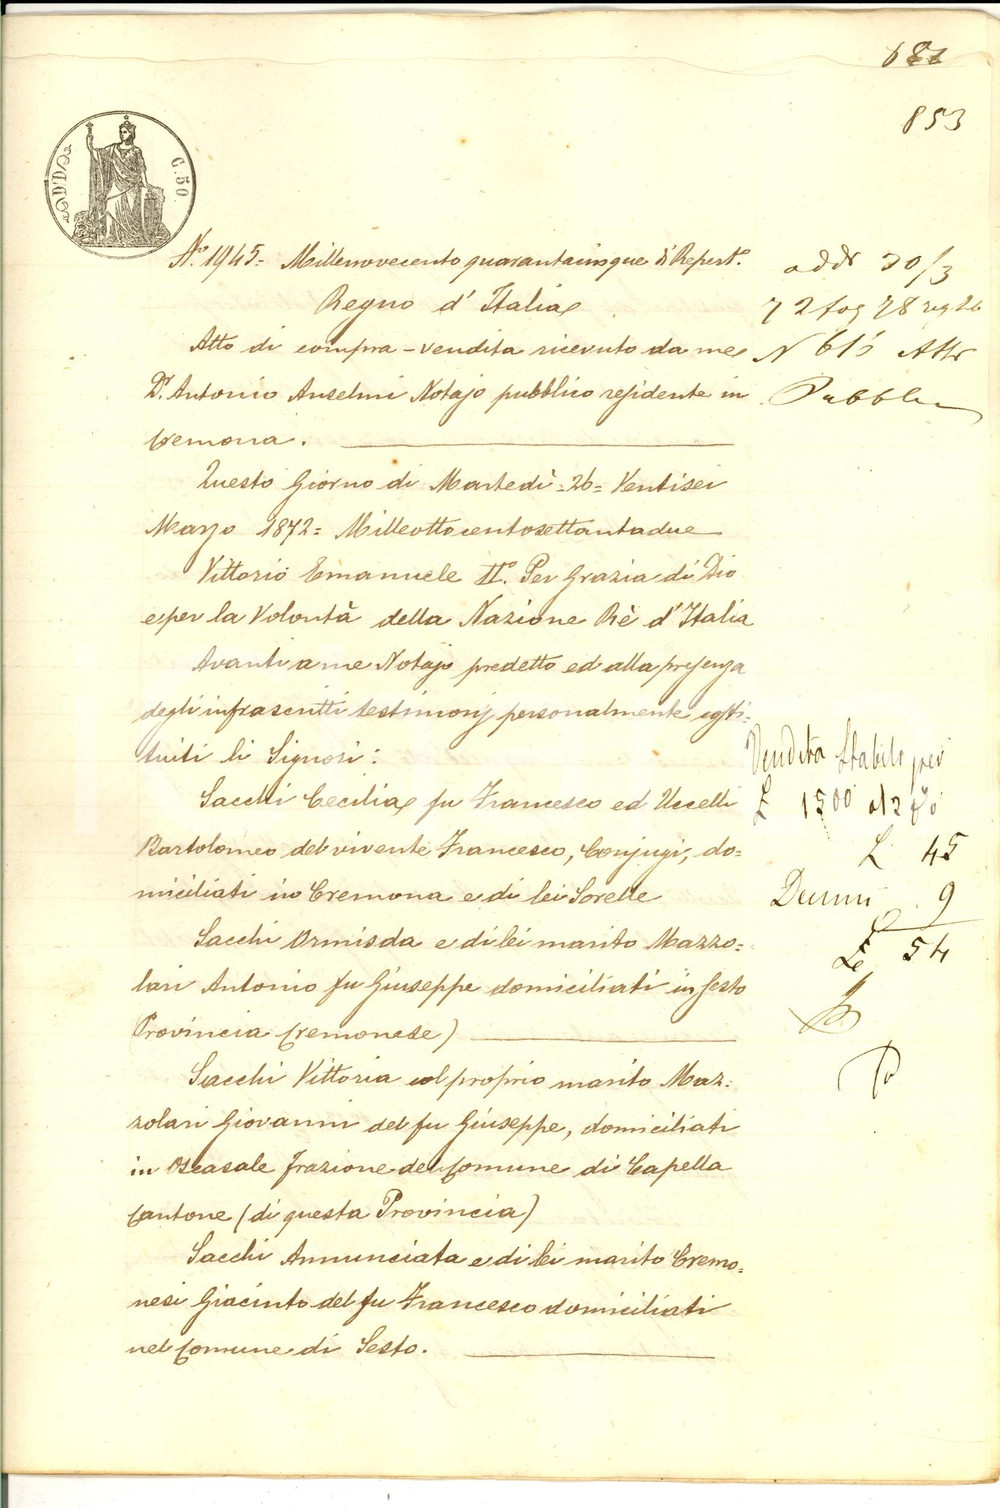 682
853
C. 50
N.° 1945= Millenovecento quarantacinque di Repert.°
Regno d' Italia
Atto di compra-vendita ricevuto da me
D.r Antonio Anselmi Notajo pubblico residente in
Cremona.
Questo Giorno di Martedì =26= Ventisei
Marzo 1872= Milleottocentosettantadue
Vittorio Emanuele II.° Per Grazia di Dio
e per la Volontà della Nazione Rè d' Italia
Avanti a me Notajo predetto ed alla presenza
degli infrascritti testimonj personalmente costi=
tuiti li Signori:
Sacchi Cecilia fu Francesco ed Uccelli
Bartolomeo del vivente Francesco, Conjugi, do=
miciliati in Cremona e di lei Sorelle
Sacchi Ormisda e di lei marito Mazzo=
lari Antonio fu Giuseppe domiciliati in Sesto
(Provincia Cremonese)
Sacchi Vittoria col proprio marito Maz=
zolari Giovanni del fu Giuseppe, domiciliati
in Oscasale frazione del Comune di Capella
Cantone (di questa Provincia)
Sacchi Annunciata e di lei marito Cremo=
nesi Giacinto del fu Francesco domiciliati
nel Comune di Sesto.
addì 30/3
72 fog 78
N 615 Atti
Pubbli
Vendita Stabili per
£ 1500 al 3 %
£ 45
Decimi 9
£ 54